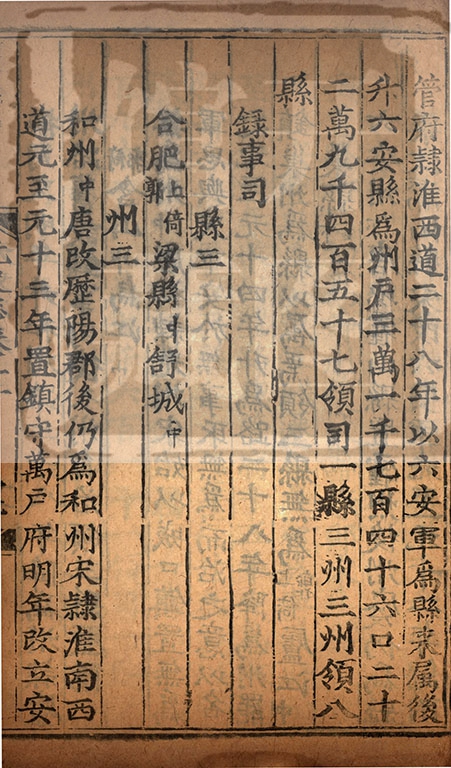 管府隷淮西道二十八年以六安軍爲縣来属後
升六安縣爲州戸三萬一千七百四十六口二十
二萬九千四百五十七領司一縣三州三州領八
縣
録事司
縣三
合肥上倚郭梁縣中舒城中
州三
和州中唐改歷陽郡後仍爲和州宋隷淮南西
道元至元十三年置鎮守萬戸府明年改立安